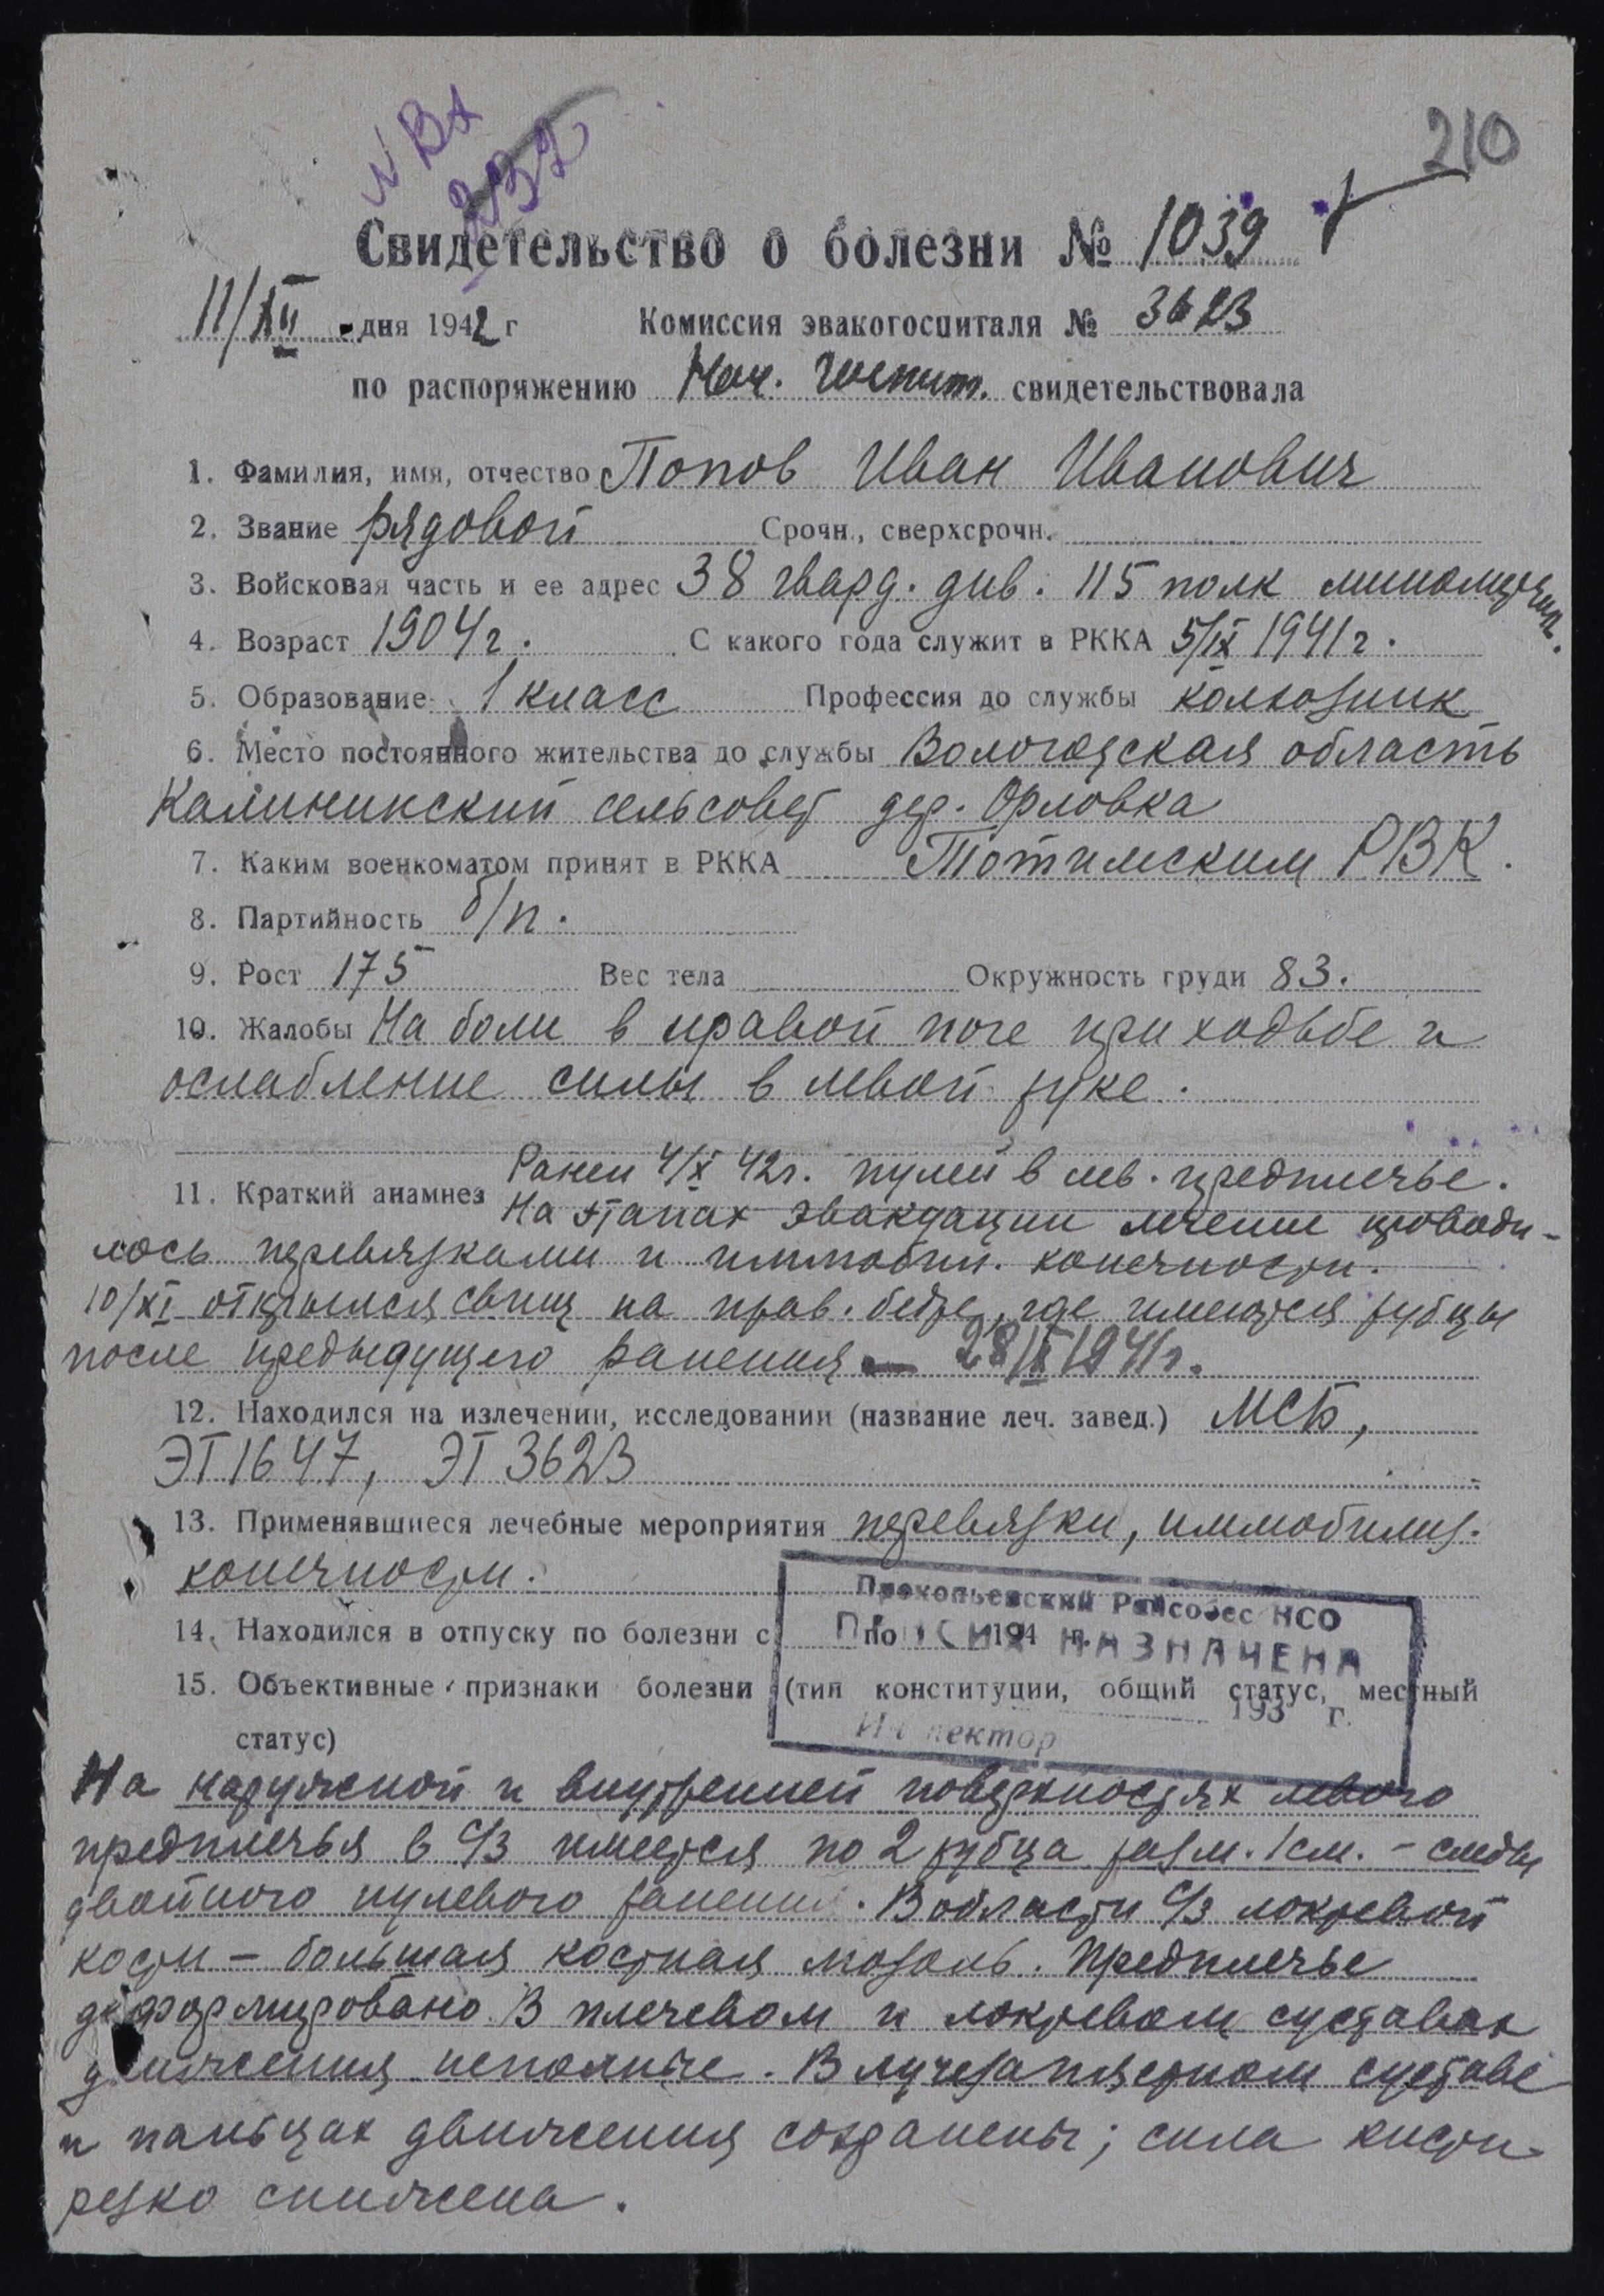 210
№ Вх
232
Свидетельство о болезни № 1039
11/XII дня 1942 г Комиссия эвакогоспиталя № 3623
по распоряжению Нач. Госпит. свидетельствовала
1. Фамилия, имя, отчество Попов Иван Иванович
2. Звание рядовой Срочн., сверхсрочн.
3. Войсковая часть и ее адрес 38 гвард. див. 115 полк минометчик.
4. Возраст 1904 г. С какого года служит в РККА 5/IX 1941 г.
5. Образование 1 класс Профессия до службы колхозник
6. Место постоянного жительства до службы Вологодская область
Калининский сельсовет дер. Орловка
7. Каким военкоматом принят в РККА Тотимским РВК.
8. Партийность б/п.
9. Рост 175 Вес тела Окружность груди 83.
10. Жалобы На боли в правой ноге при ходьбе и
ослабление силы в левой руке.
Ранен 4/X 42г. пулей в лев. предплечье.
11. Краткий анамнез На этапах эвакуации лечение проводи-
лось перевязками и иммобил. конечности.
10/XI открылся свищ на прав. бедре, где имеются рубцы
после предыдущего ранения — 28/IX 1941г.
12. Находился на излечении, исследовании (название леч. завед.) МСБ,
ЭГ 1647, ЭГ 3623
13. Применявшиеся лечебные мероприятия перевязки, иммобилиз.
конечности.
Прокопьевский Райсобес НСО
14. Находился в отпуску по болезни с по 194 г.
ПЕНСИЯ НАЗНАЧЕНА
15. Объективные признаки болезни (тип конституции, общий статус, местный
193 г.
статус)
Инспектор
На наружной и внутренней поверхностях левого
предплечья в с/3 имеется по 2 рубца разм. 1 см. - следы
двойного пулевого ранения. В области с/3 локтевой
кости - большая костная мозоль. Предплечье
деформировано. В плечевом и локтевом суставах
движения неполные. В лучезапястном суставе
и пальцах движения сохранены; сила кисти
резко снижена.